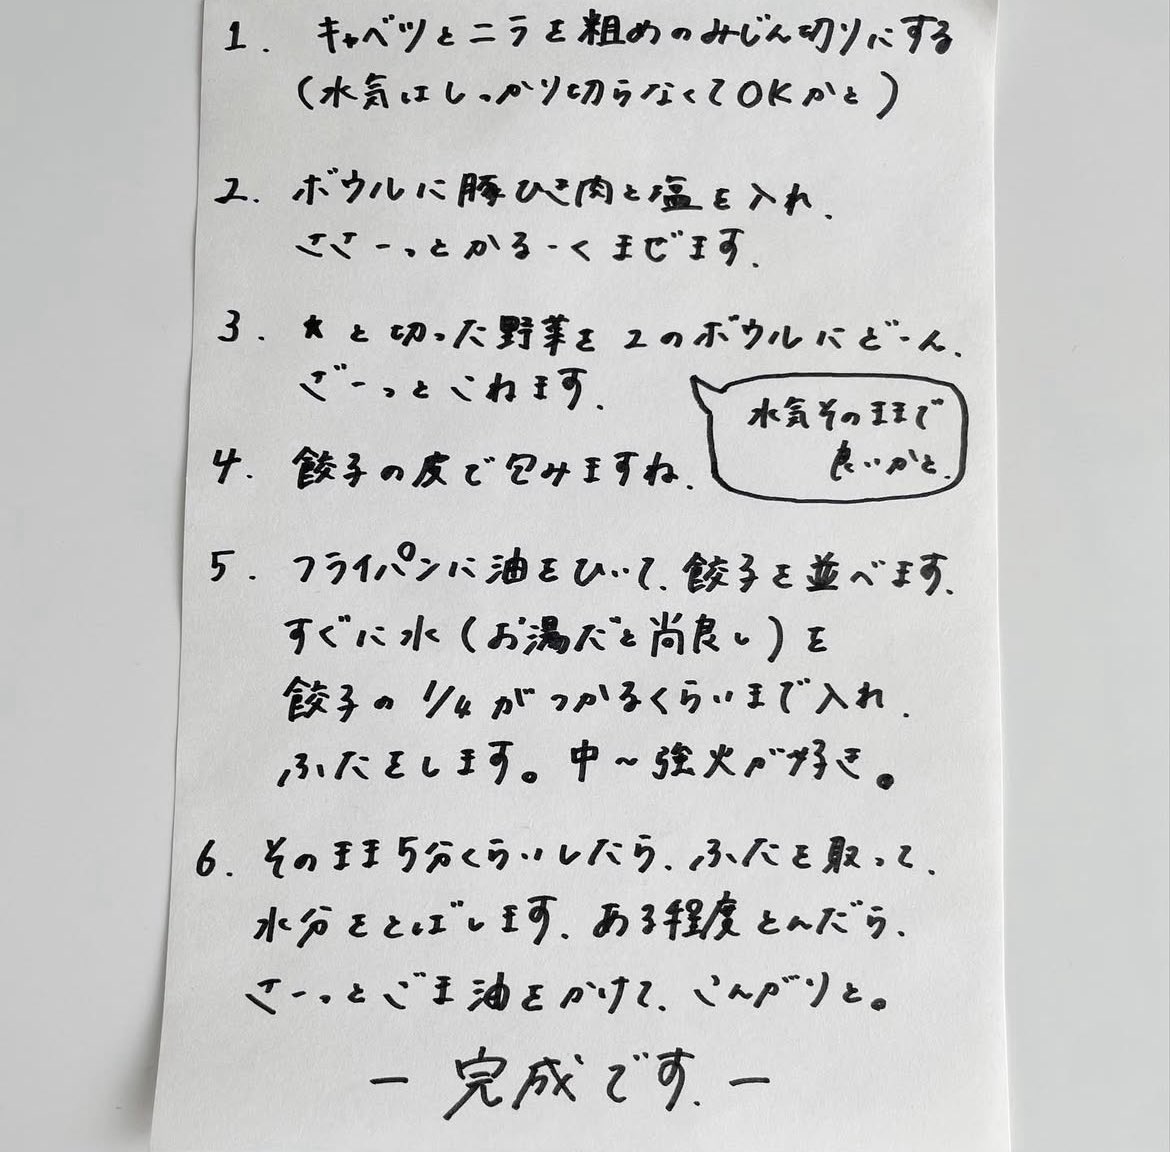 1. キャベツとニラを粗めのみじん切りにする
(水気はしっかり切らなくてOKかと)
2. ボウルに豚ひき肉と塩を入れ、
ささーっとかるーくまぜます。
3. ★と切った野菜を2のボウルにどーん、
ざーっとこねます。
水気そのままで
良いかと。
4. 餃子の皮で包みますね。
5. フライパンに油をひいて、餃子を並べます。
すぐに水(お湯だと尚良し)を
餃子の1/4がつかるくらいまで入れ、
ふたをします。中~強火が好き。
6. そのまま5分くらいしたら、ふたを取って、
水分をとばします。ある程度とんだら、
さーっとごま油をかけて、こんがりと。
ー完成です。ー